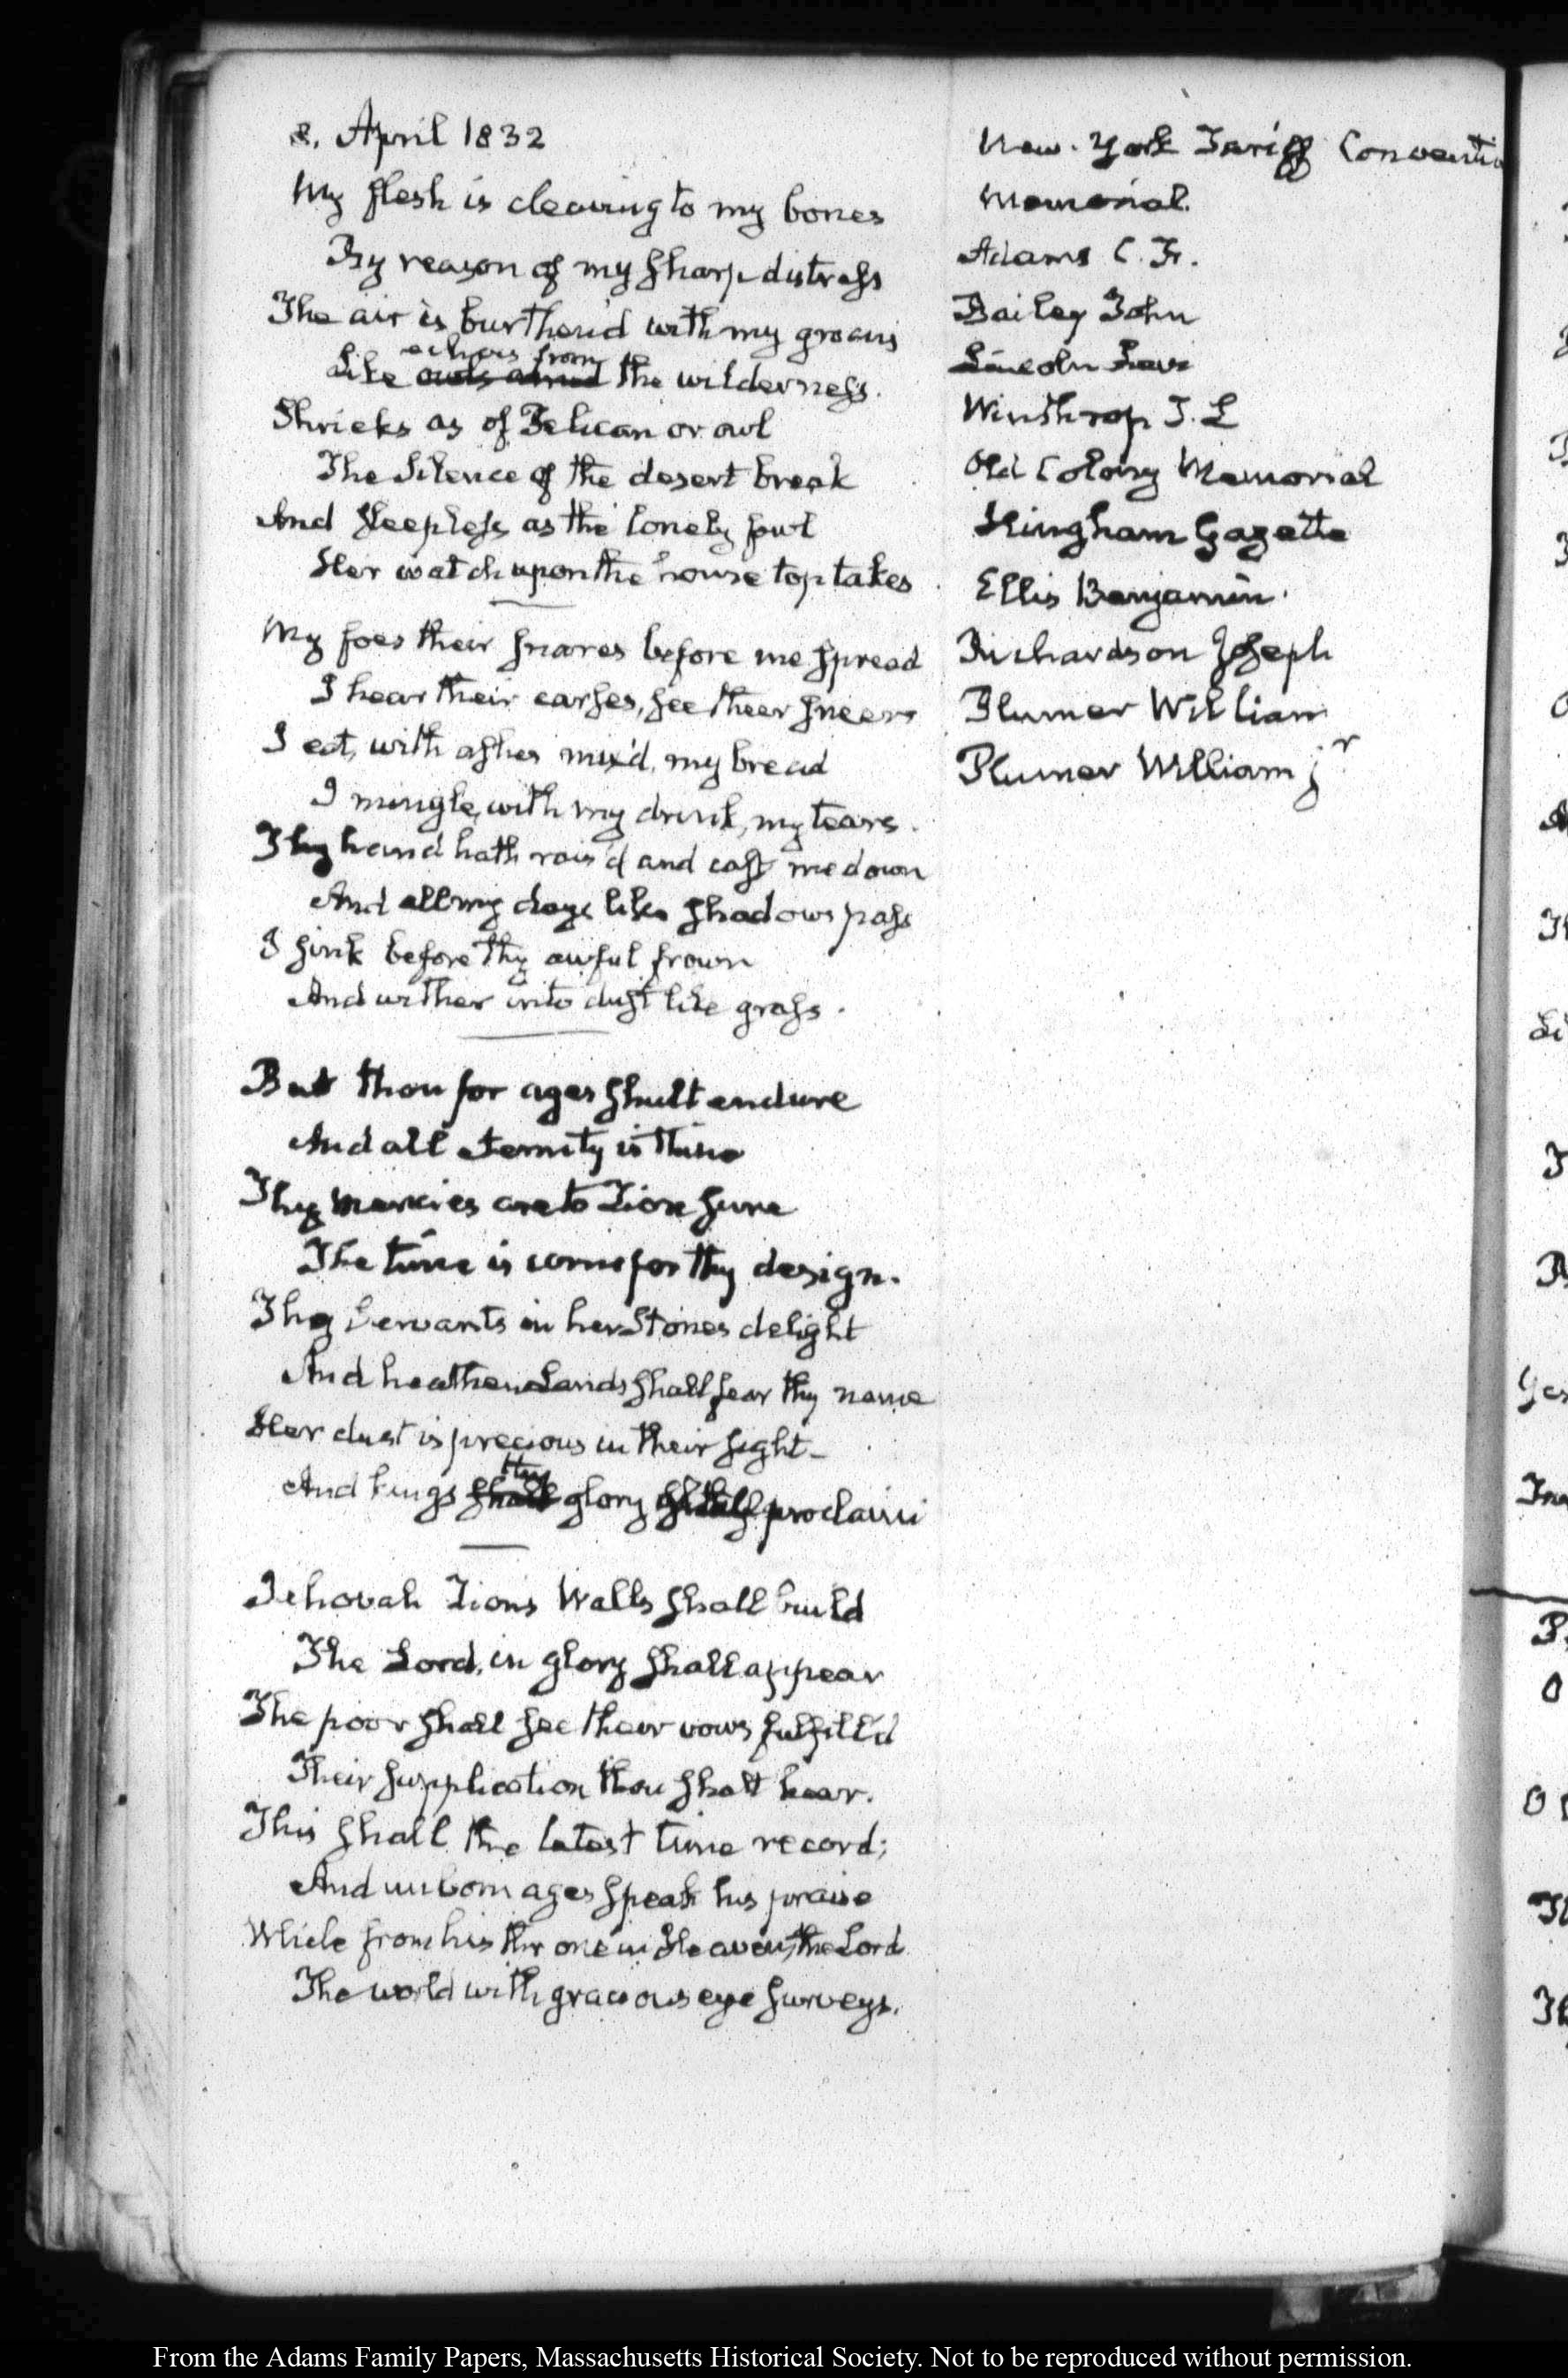 8. April 1832
My flesh is cleaving to my bones
By reason of my sharp distress
The air is burthen'd with my groans
echoes from
Like owls amid the wilderness.
Shrieks as of Pelican or owl
The Silence of the desert break
And sleepless as the lonely fowl
Her watch upon the house top takes
My foes their snares before me spread
I hear their curses, see their sneers
I eat, with ashes mix'd, my bread
I mingle, with my drink, my tears.
Thy hand hath rais'd and cast me down
And all my days like shadows pass
I sink before thy awful frown
And wither into dust like grass.
But thou for ages shalt endure
And all eternity is thine
Thy mercies are to Zion sure
The time is come for thy design.
Thy Servants in her Stones delight
And heathen Lands shall fear thy name
Her dust is precious in their sight—
thy
And kings shall glory proclaim
Jehovah Zion's Walls shall build
The Lord, in glory shall appear
The poor shall see their vows fulfill'd
Their supplication thou shalt hear.
This shall the latest time record;
And unborn ages speak his praise
While from his throne in Heaven, the Lord
The world with gracious eye surveys.
New-York Tariff Conventio
Memorial.
Adams C. F.
Bailey John
Lincoln Levi
Winthrop T. L
Old Colony Memorial
Hingham Gazette
Ellis Benjamin.
Richardson Joseph
Plumer William
Plumer William jr
From the Adams Family Papers, Massachusetts Historical Society. Not to be reproduced without permission.